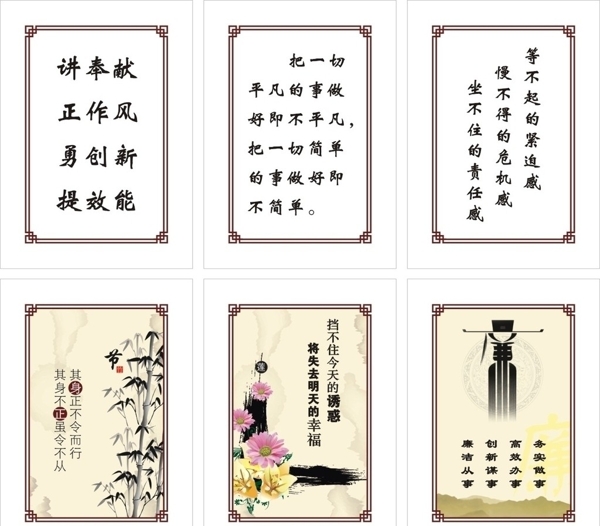 讲奉献
正作风
勇创新
提效能
把一切
平凡的事做
好即不平凡，
把一切简单
的事做好即
不简单。
等不起的紧迫感
慢不得的危机感
坐不住的责任感
节
其身正不令而行
其身不正虽令不从
挡不住今天的诱惑
将失去明天的幸福
廉
务实做事
高效办事
创新谋事
廉洁从事